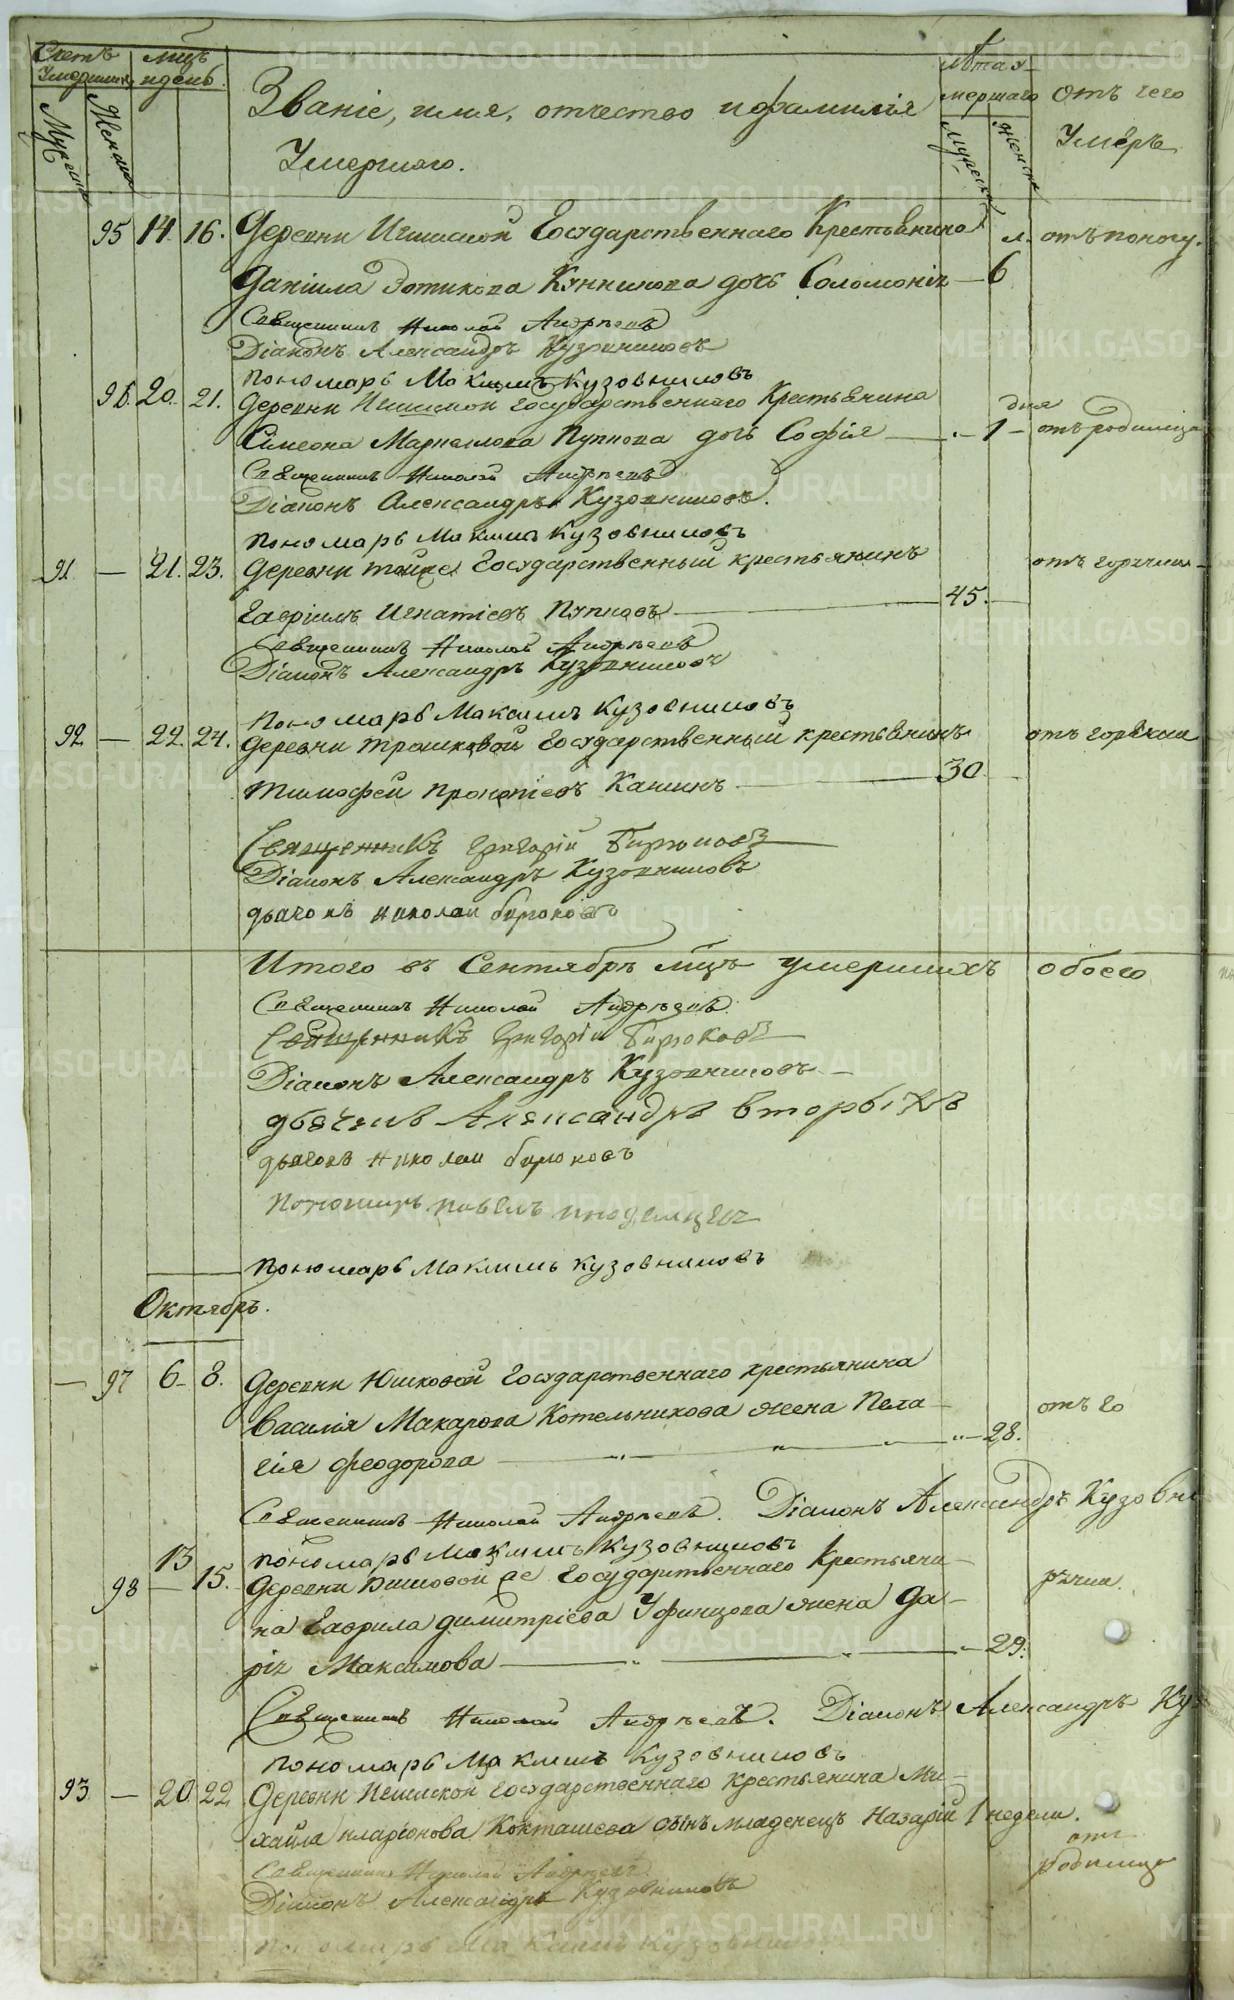 Счетъ умершихъ
Мужеска
Женска
Мцъ и день
Званіе, имя, отчество и фамилія
Умершаго.
Лѣта умершаго
Мужеска
Женска
отъ чего
Умеръ
95 14. 16. Деревни Государственнаго Крестьянина л. отъ поносу.
Даніила Зотикова дочь Соломонія — 6
Священникъ Николай Андреевъ
Діаконъ Александръ Кузовниковъ
Пономарь Максимъ Кузовниковъ
96. 20. 21. Деревни Государственнаго Крестьянина дня
Симеона Маркелова Пупкова дочь Софія — 1 — отъ родимца
Священникъ Николай Андреевъ
Діаконъ Александръ Кузовниковъ.
Пономарь Максимъ Кузовниковъ
91. — 21. 23. Деревни тойже Государственный крестьянинъ отъ горячки
Гавріилъ Игнатіевъ Пупковъ — 45.
Священникъ Николай Андреевъ
Діаконъ Александръ Кузовниковъ
Пономарь Максимъ Кузовниковъ
92. — 22. 24. Деревни Трошковой Государственный крестьянинъ отъ горячки
Тимофей Прокопіевъ Кашинъ — 30.
Священникъ Григорій Бирюковъ
Діаконъ Александръ Кузовниковъ
дьячокъ Николай Бирюковъ
Итого въ Сентябрѣ мцѣ умершихъ обоего
Священникъ Николай Андреевъ.
Священникъ Григорій Бирюковъ
Діаконъ Александръ Кузовниковъ —
дьячекъ Александръ Вторыхъ
дьячокъ Николай Бирюковъ
Пономарь Павелъ
Пономарь Максимъ Кузовниковъ
Октябрь.
— 97 6 — 8. Деревни Юшковой Государственнаго крестьянина
Василія Макарова Котельникова жена Пела- отъ го
гія Феодорова — 28.
Священникъ Николай Андреевъ. Діаконъ Александръ Кузовни
Пономарь Максимъ Кузовниковъ
98 13 — 15. Деревни Государственнаго Крестьяни- рячки.
на Гаврила Димитріева Уфинцова жена Да-
рія Максимова — 29.
Священникъ Николай Андреевъ. Діаконъ Александръ Куз
Пономарь Максимъ Кузовниковъ
93 — 20. 22. Деревни Государственнаго крестьянина Ми-
хайла Иларіонова Кокташева сынъ младенецъ Назарій 1 недели.
отъ родимца
Священникъ Николай Андреевъ
Діаконъ Александръ Кузовниковъ
Пономарь Максимъ Кузовни
METRIKI.GASO-URAL.RU